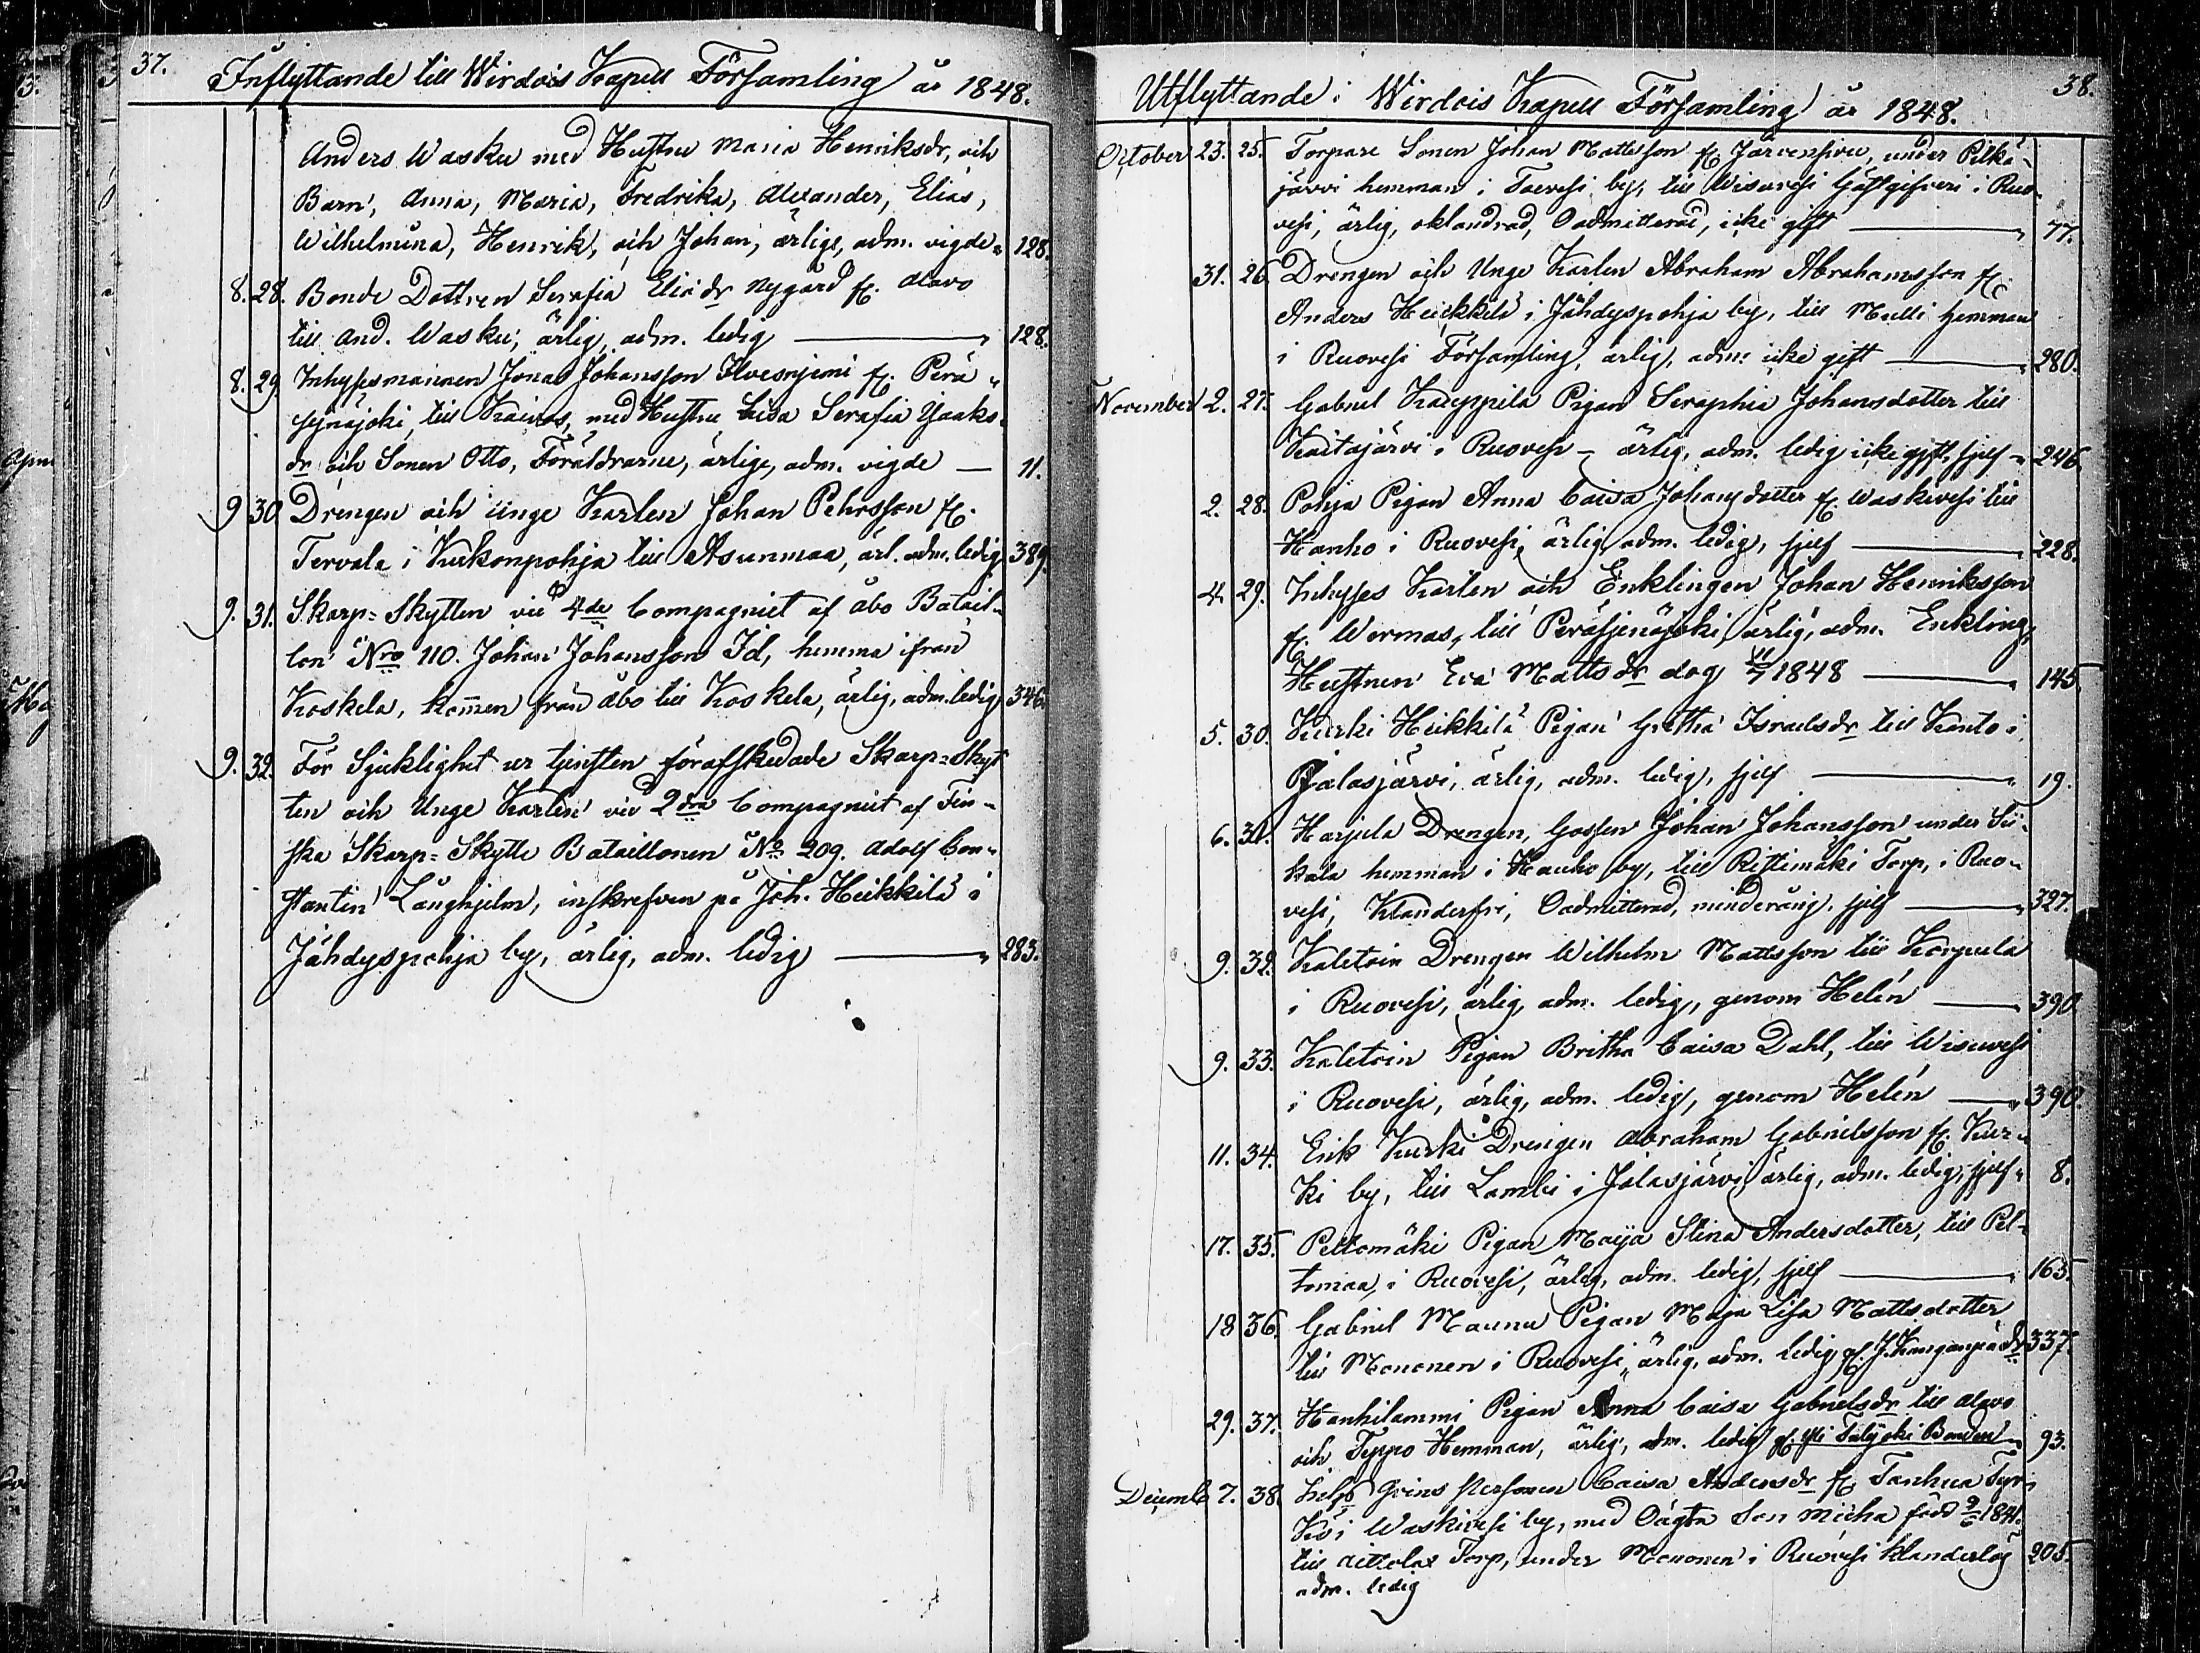 37. Inflyttande till Wirdois Kapell Församling år 1848.
Anders Wasku med Hustru Maria Henriksdr, och
Barn, Anna, Maria, Fredrika, Alexander, Elias,
Wilhelmina, Henrik, och Johan, ärlige, adm. vigde 128.
8. 28. Bonde Dottren Serafia Eliædr Nygård fr. Alavo
till And. Wasku, ärlig, adm. ledig 128.
8. 29. Inhysesmannen Jonas Johansson Ilvesnjemi fr. Perä-
sejnäjoki, till Kaivos, med Hustru Caisa Serafia Jaaks-
dr och Sonen Otto, Föräldrarne, ärlige, adm. vigde 11.
9 30. Drengen och unge Karlen Johan Pehrsson fr.
Tervala i Kurkonpohja till Asunmaa, ärl. adm. ledig 389.
9. 31. Skarp-Skytten vid 4de Compagniet af Åbo Batail-
lon Nro 110. Johan Johansson Id, hemma ifrån
Koskela, kommen från Åbo till Koskela, ärlig, adm. ledig 346.
9. 32. För Sjuklighet ur tjensten förafskedade Skarp-Skyt
ten och Unge Karlen vid 2dra Compagniet af Fin-
ska Skarp-Skytte Bataillonen No 209. Adolf Con-
stantin Långhjelm, inskrefven på Joh. Heikkilä i
Jähdyspohja by, ärlig, adm. ledig 283.
Utflyttande i Wirdois Kapell Församling år 1848. 38.
October 23. 25. Torpare Sonen Johan Mattsson fr. Järvensivu, under Pilkä-
järvi hemman i Toevesi by, till Wisuvesi Gästgifveri i Ruo-
vesi, ärlig, oklandrad, Oadmitterad, icke gift 77.
31. 26 Drengen och Unge Karlen Abraham Abrahamsson fr.
Anders Heikkilä i Jähdyspohja by, till Mulli hemman
i Ruovesi Församling, ärlig, adm: icke gift 280.
November 2. 27. Gabriel Kauppila Pigan Seraphia Johansdotter till
Kaitajärvi i Ruovesi ärlig, adm. ledig icke gift, sjelf 246
2. 28. Pohja Pigan Anna Caisa Johansdotter fr. Waskivesi till
Hanho i Ruovesi, ärlig, adm. ledig, sjelf 228.
4. 29. Inhyses Karlen och Enklingen Johan Henriksson
fr. Wermas, till Peräsejnäjoki, ärlig, adm. Enkling,
Hustrun Eva Mattsdr dog 1848 145.
5. 30. Kurki Heikkilä Pigan Gretha Israelsdr till Kanto i
Jalasjärvi, ärlig, adm. ledig, sjelf 19.
6. 31. Harjula Drengen, Gossen Johan Johansson under Sii-
kala hemman i Hauho by, till Ristimäki Torp, i Ruo-
vesi, Klanderfri, Oadmitterad, minderårig, sjelf 327.
9. 32. Kaletoin Drengen Wilhelm Mattsson till Korpula
i Ruovesi, ärlig, adm. ledig, genom Helén 390
9. 33. Kaletoin Pigan Britha Caisa Dahl, till Wisuvesi
i Ruovesi, ärlig, adm. ledig, genom Helén 390.
11. 34. Erik Kurki Drengen Abraham Gabrielsson fr. Kur-
ki by, till Lambi i Jalasjärvi, ärlig, adm. ledig, sjelf 8.
17. 35. Peltomäki Pigan Maija Stina Andersdotter, till Pel-
tomaa, i Ruovesi, ärlig, adm. ledig, sjelf 163.
18 36. Gabriel Maunu Pigan Maja Lisa Mattsdotter
till Mononen i Ruovesi, ärlig, adm. ledig, gf. J. Kangaspää dr 337.
29. 37. Hankilammi Pigan Anna Caisa Gabrielsdr till Alavo
och Teppo Hemman, ärlig, adm. ledig gf. Bonden 93.
Decemb. 7. 38. Inhys Qvins Personen Caisa Andersdr fr. Tanhua Tyr-
kö i Waskivesi by, med Oägta Son Micha född 1841.
till Aittolax Torp, under Mononen i Ruovesi klanderlös 205.
adm. ledig